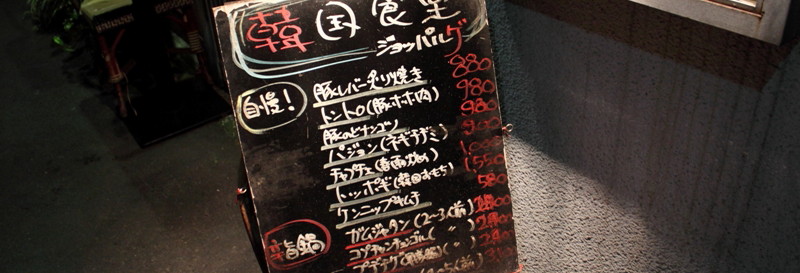 韓国食堂
ジョッパルゲ
自慢!
豚レバー炙り焼き 880
トントロ(豚ホホ肉) 980
豚のどナンコツ 980
パジョン(ネギチヂミ) 900
チャプチェ(春雨炒め) 1,000
トッポギ(韓国おもち) 1,550
ケンニップキムチ 580
辛旨鍋
ガムジャタン(2〜3人前)
コプチャンチョンゴル( 〃 )
プデチゲ